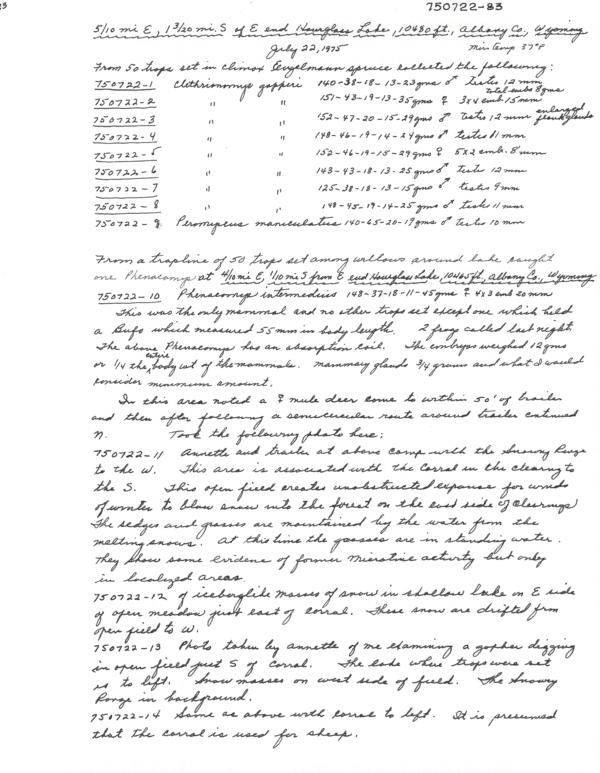 750722-83
5/10 mi E, 1 3/20 mi. S of E end Hourglass Lake, 10480 ft., Albany Co., Wyoming
July 22, 1975 Min temp 37°F
From 50 traps set in climax Engelmann spruce collected the following:
750722-1 Clethrionomys gapperi 140-38-18-13-23 gms ♂ testes 12 mm
total embs 8 gms
750722-2 " " 151-43-19-13-35 gms ♀ 3x4 emb 15 mm
750722-3 " " 152-47-20-15-29 gms ♂ testes 12 mm enlarged flank glands
750722-4 " " 148-46-19-14-24 gms ♂ testes 11 mm
750722-5 " " 152-46-19-15-29 gms ♀ 5x2 emb. 8 mm
750722-6 " " 143-43-18-13-25 gms ♂ testes 12 mm
750722-7 " " 125-38-18-13-15 gms ♂ testes 9 mm
750722-8 " " 148-45-19-14-25 gms ♂ testes 11 mm
750722-9 Peromyscus maniculatus 140-65-20-19 gms ♂ testes 10 mm
From a trapline of 50 traps set among willows around lake caught
one Phenacomys at 4/10 mi E, 1/10 mi S from E end Hourglass Lake, 10465 ft, Albany Co., Wyoming
750722-10 Phenacomys intermedius 148-37-18-11-45 gms ♀ 4x3 emb 20 mm
This was the only mammal and no other traps set except one which held
a Bufo which measured 55 mm in body length. 2 frogs called last night.
The above Phenacomys has an absorption coil. The embryos weighed 12 gms
or 1/4 the entire body wt of the mammal. mammary glands 3/4 grams and what I would
consider minimum amount.
In this area noted a ♀ mule deer come to within 50' of trailer
and then after following a semicircular route around trailer continued
N. Took the following photo here:
750722-11 Annette and trailer at above camp with the Snowy Range
to the W. This area is associated with the Corral in the clearing to
the S. This open field creates unobstructed expanse for winds
of winter to blow snow into the forest on the east side of clearings.
The sedges and grasses are maintained by the water from the
melting snows. At this time the grasses are in standing water.
They show some evidence of former Microtine activity but only
in localized areas.
750722-12 of iceberglike masses of snow in shallow lake on E side
of open meadow just east of corral. These snow are drifted from
open field to W.
750722-13 Photo taken by Annette of me examining a gopher digging
in open field just S of Corral. The lake where traps were set
is to left. Snow masses on west side of field. The Snowy
Range in background.
750722-14 Same as above with corral to left. It is presumed
that the corral is used for sheep.